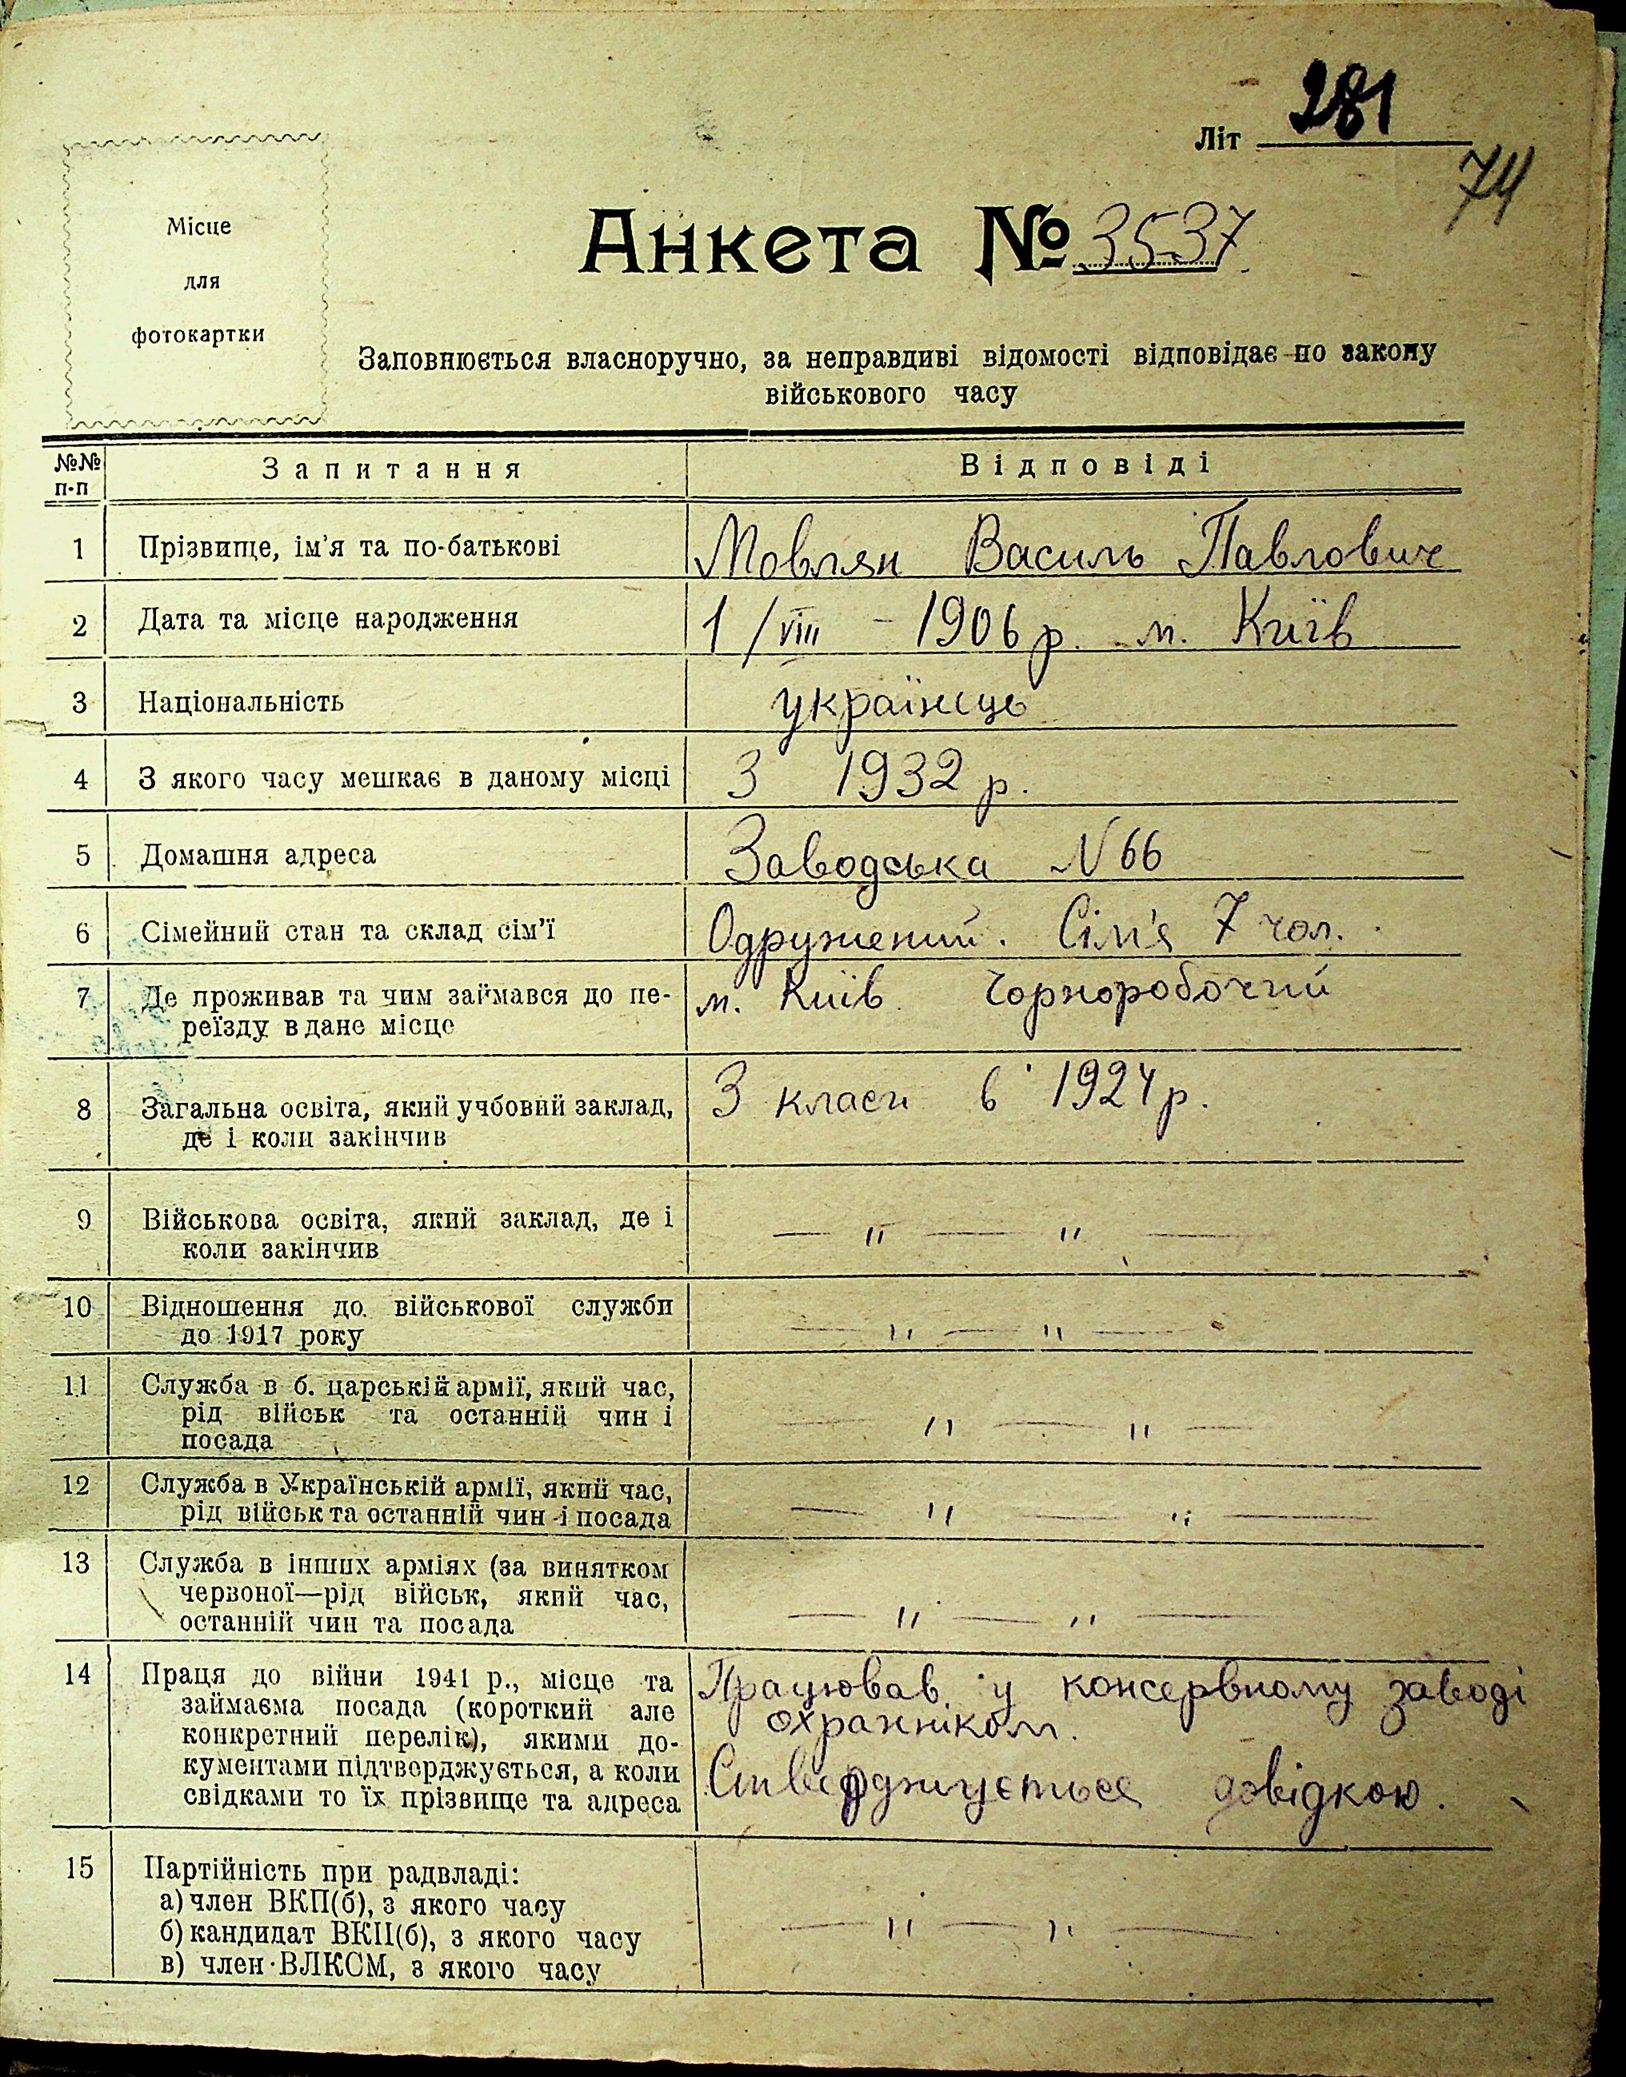 Літ 281
74
Місце
для
фотокартки
Анкета № 3537
Заповнюється власноручно, за неправдиві відомості відповідає по закону
військового часу
№№ п-п Запитання Відповіді
1 Прізвище, ім'я та по-батькові Мовлян Василь Павлович
2 Дата та місце народження 1/VIII - 1906 р. м. Київ
3 Національність українець
4 З якого часу мешкає в даному місці З 1932 р.
5 Домашня адреса Заводська N 66
6 Сімейний стан та склад сім'ї Одружений. Сім'я 7 чол.
7 Де проживав та чим займався до пе- м. Київ Чорноробочий
реїзду в дане місце
8 Загальна освіта, який учбовий заклад, 3 класи в 1924 р.
де і коли закінчив
9 Військова освіта, який заклад, де і
коли закінчив — " — " —
10 Відношення до військової служби
до 1917 року — " — " —
11 Служба в б. царській армії, який час,
рід військ та останній чин і — " — " —
посада
12 Служба в Українській армії, який час,
рід військ та останній чин і посада — " — " —
13 Служба в інших арміях (за винятком
червоної—рід військ, який час,
останній чин та посада — " — " —
14 Праця до війни 1941 р., місце та Працював у консервному заводі
займаєма посада (короткий але охранніком.
конкретний перелік), якими до-
кументами підтверджується, а коли Стверджується довідкою.
свідками то їх прізвище та адреса
15 Партійність при радвладі:
а) член ВКП(б), з якого часу
б) кандидат ВКП(б), з якого часу — " — " —
в) член ВЛКСМ, з якого часу